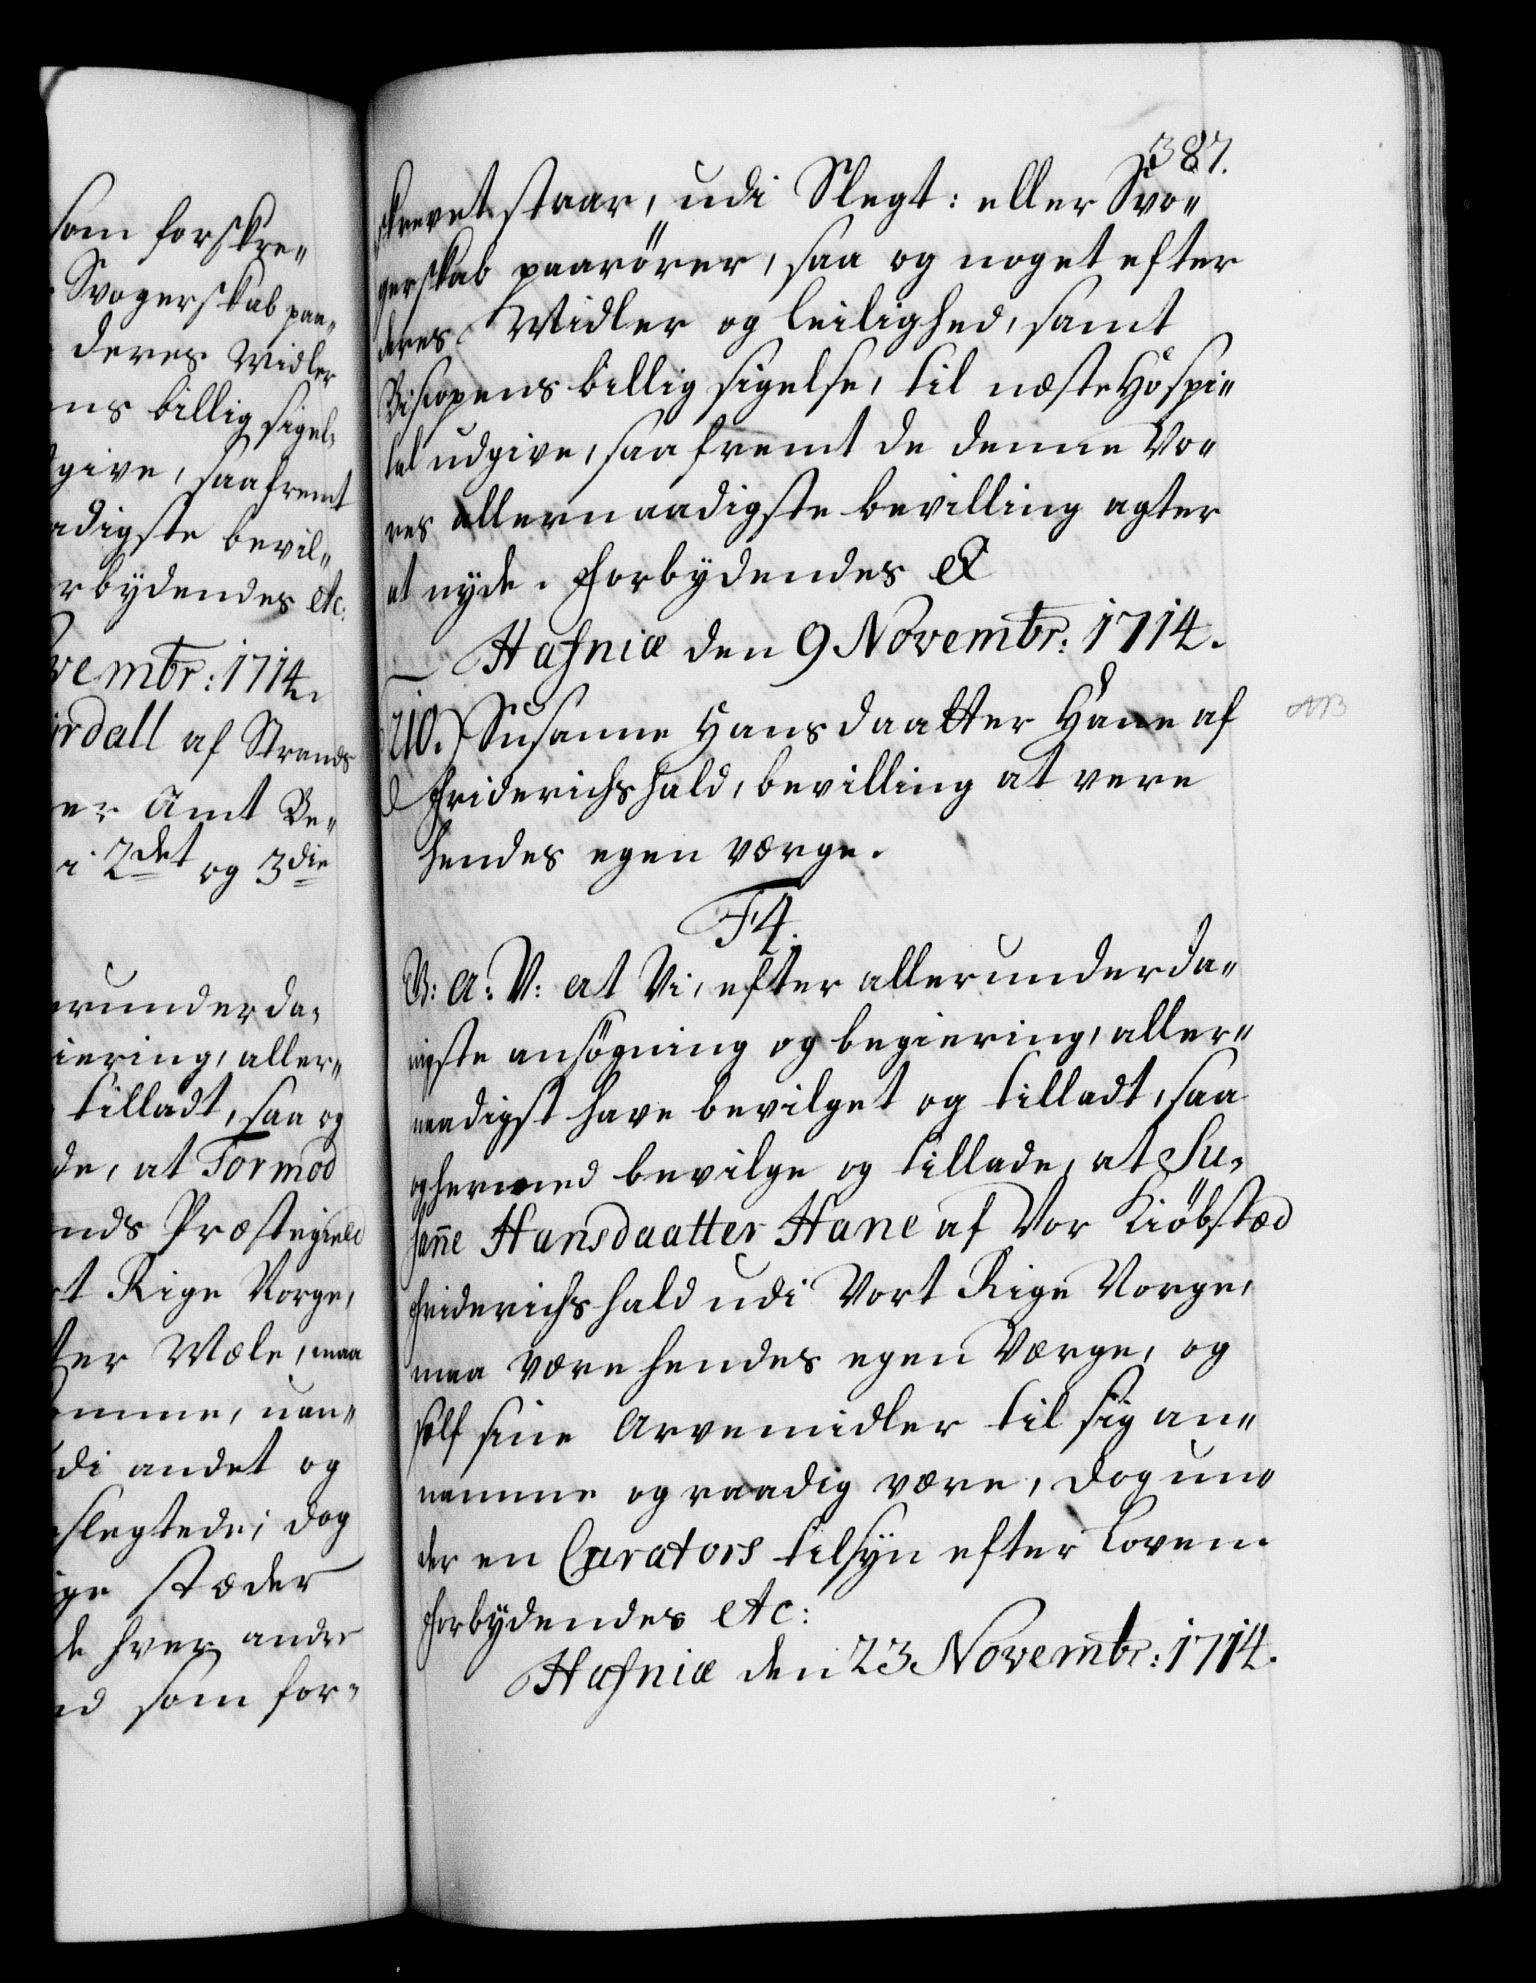 som forskre„
Svogerskab paa„
deres Midler
ns billig sigel„
give, saafremt
adigste bevil„
rbÿdendes etc:
vembr: 1714.
rdall af Strands
er Amt Be„
i 2det og 3die
erunderda„
iering, aller„
tilladt, saa og
de, at Tormod
nds Præstegield
t Rige Norge,
ter Mæle, maa
omme, uan„
di andet og
slegtede; dog
ige stæder
de hver andre
d som for„
387.
skrevet staar, udi Slegt: eller Svo„
gerskab paarörer, saa og noget efter
deres Midler og leilighed, samt
Biscopens billig sigelse, til næste Hospi„
tal udgive, saafremt de denne Vo„
res allernaadigste bevilling agter
at nyde. Forbÿdendes &
Hafniæ den 9 Novembr: 1714.
210.) Susanne Hansdaatter Hane af
Friderichshald, bevilling at vere
hendes egen værge.
F4.
G: A: V: At Vi, efter allerunderda„
nigste ansögning og begiering, aller„
naadigst have bevilget og tilladt, saa
og hermed bevilge og tillade, at Su„
sañe Hansdaatter Hane af Vor Kiöbstæd
Friderichshald udi Vort Rige Norge,
maa være hendes egen Værge, og
self sine Arvemidler til sig an„
namme og raadig være, dog un„
der en Curators tilsÿn efter Loven.
Forbÿdendes etc:
Hafniæ den 23 Novembr: 1714.
AB